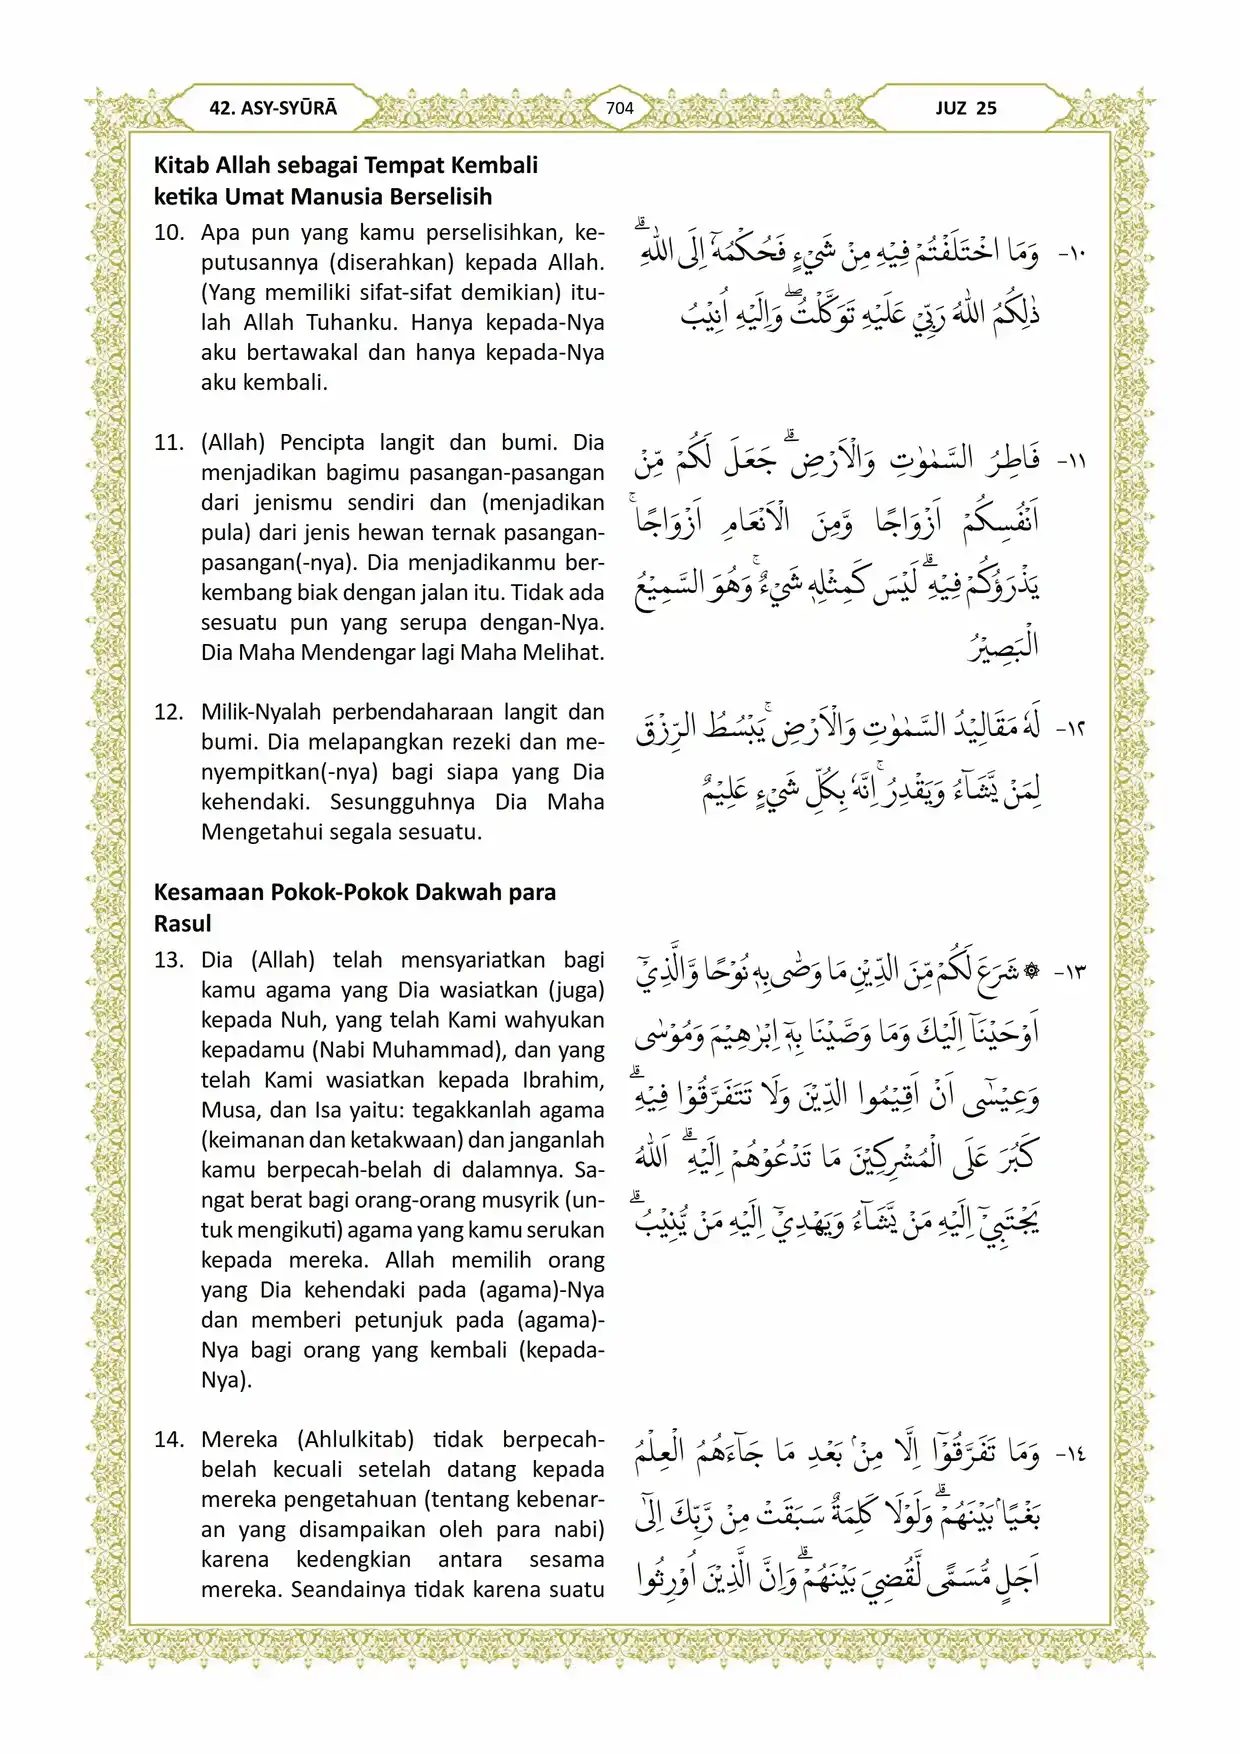 42. ASY-SYŪRĀ
704
JUZ 25
Kitab Allah sebagai Tempat Kembali
ketika Umat Manusia Berselisih
10. Apa pun yang kamu perselisihkan, ke-
putusannya (diserahkan) kepada Allah.
(Yang memiliki sifat-sifat demikian) itu-
lah Allah Tuhanku. Hanya kepada-Nya
aku bertawakal dan hanya kepada-Nya
aku kembali.
١٠- وَمَا اخْتَلَفْتُمْ فِيْهِ مِنْ شَيْءٍ فَحُكْمُهٗٓ اِلَى اللّٰهِ ۗ
ذٰلِكُمُ اللّٰهُ رَبِّيْ عَلَيْهِ تَوَكَّلْتُۖ وَاِلَيْهِ اُنِيْبُ
11. (Allah) Pencipta langit dan bumi. Dia
menjadikan bagimu pasangan-pasangan
dari jenismu sendiri dan (menjadikan
pula) dari jenis hewan ternak pasangan-
pasangan(-nya). Dia menjadikanmu ber-
kembang biak dengan jalan itu. Tidak ada
sesuatu pun yang serupa dengan-Nya.
Dia Maha Mendengar lagi Maha Melihat.
١١- فَاطِرُ السَّمٰوٰتِ وَالْاَرْضِۗ جَعَلَ لَكُمْ مِّنْ
اَنْفُسِكُمْ اَزْوَاجًا وَّمِنَ الْاَنْعَامِ اَزْوَاجًاۚ
يَذْرَؤُكُمْ فِيْهِۗ لَيْسَ كَمِثْلِهٖ شَيْءٌ ۚوَهُوَ السَّمِيْعُ
الْبَصِيْرُ
12. Milik-Nyalah perbendaharaan langit dan
bumi. Dia melapangkan rezeki dan me-
nyempitkan(-nya) bagi siapa yang Dia
kehendaki. Sesungguhnya Dia Maha
Mengetahui segala sesuatu.
١٢- لَهٗ مَقَالِيْدُ السَّمٰوٰتِ وَالْاَرْضِۚ يَبْسُطُ الرِّزْقَ
لِمَنْ يَّشَاۤءُ وَيَقْدِرُ ۚاِنَّهٗ بِكُلِّ شَيْءٍ عَلِيْمٌ
Kesamaan Pokok-Pokok Dakwah para
Rasul
13. Dia (Allah) telah mensyariatkan bagi
kamu agama yang Dia wasiatkan (juga)
kepada Nuh, yang telah Kami wahyukan
kepadamu (Nabi Muhammad), dan yang
telah Kami wasiatkan kepada Ibrahim,
Musa, dan Isa yaitu: tegakkanlah agama
(keimanan dan ketakwaan) dan janganlah
kamu berpecah-belah di dalamnya. Sa-
ngat berat bagi orang-orang musyrik (un-
tuk mengikuti) agama yang kamu serukan
kepada mereka. Allah memilih orang
yang Dia kehendaki pada (agama)-Nya
dan memberi petunjuk pada (agama)-
Nya bagi orang yang kembali (kepada-
Nya).
١٣- ۞ شَرَعَ لَكُمْ مِّنَ الدِّيْنِ مَا وَصّٰى بِهٖ نُوْحًا وَّالَّذِيْٓ
اَوْحَيْنَآ اِلَيْكَ وَمَا وَصَّيْنَا بِهٖٓ اِبْرٰهِيْمَ وَمُوْسٰى
وَعِيْسٰٓى اَنْ اَقِيْمُوا الدِّيْنَ وَلَا تَتَفَرَّقُوْا فِيْهِۗ
كَبُرَ عَلَى الْمُشْرِكِيْنَ مَا تَدْعُوْهُمْ اِلَيْهِۗ اَللّٰهُ
يَجْتَبِيْٓ اِلَيْهِ مَنْ يَّشَاۤءُ وَيَهْدِيْٓ اِلَيْهِ مَنْ يُّنِيْبُۗ
14. Mereka (Ahlulkitab) tidak berpecah-
belah kecuali setelah datang kepada
mereka pengetahuan (tentang kebenar-
an yang disampaikan oleh para nabi)
karena kedengkian antara sesama
mereka. Seandainya tidak karena suatu
١٤- وَمَا تَفَرَّقُوْٓا اِلَّا مِنْۢ بَعْدِ مَا جَاۤءَهُمُ الْعِلْمُ
بَغْيًاۢ بَيْنَهُمْۗ وَلَوْلَا كَلِمَةٌ سَبَقَتْ مِنْ رَّبِّكَ اِلٰٓى
اَجَلٍ مُّسَمًّى لَّقُضِيَ بَيْنَهُمْۗ وَاِنَّ الَّذِيْنَ اُوْرِثُوا